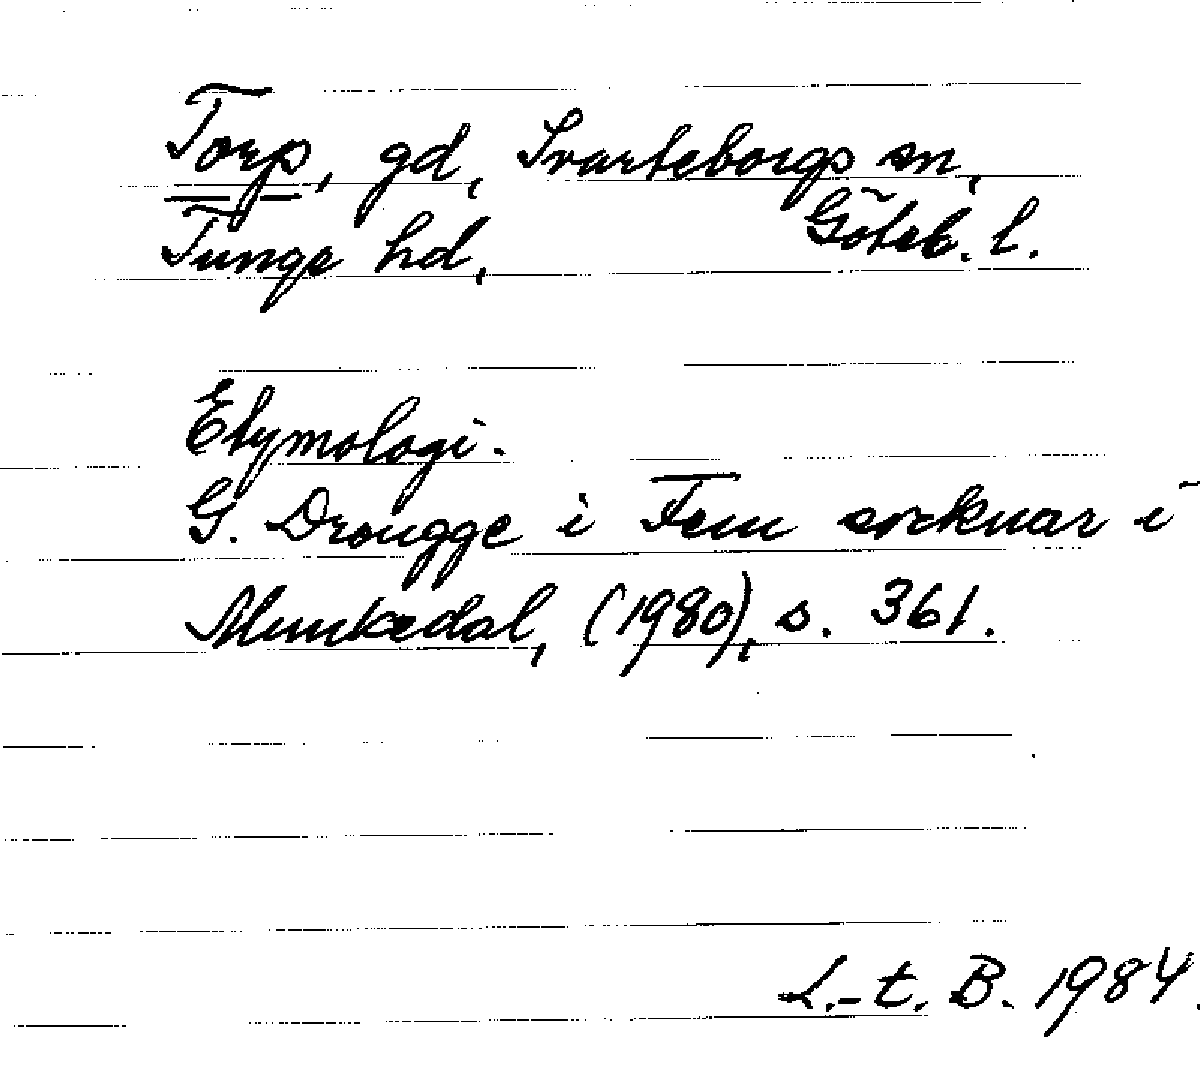 Torp, gd, Svarteborgs sn,
Tunge hd, Göteb. l.
Etymologi.
G. Drougge i Fem socknar i
Munkedal, (1980), s. 361.
L.-t. B. 1984.